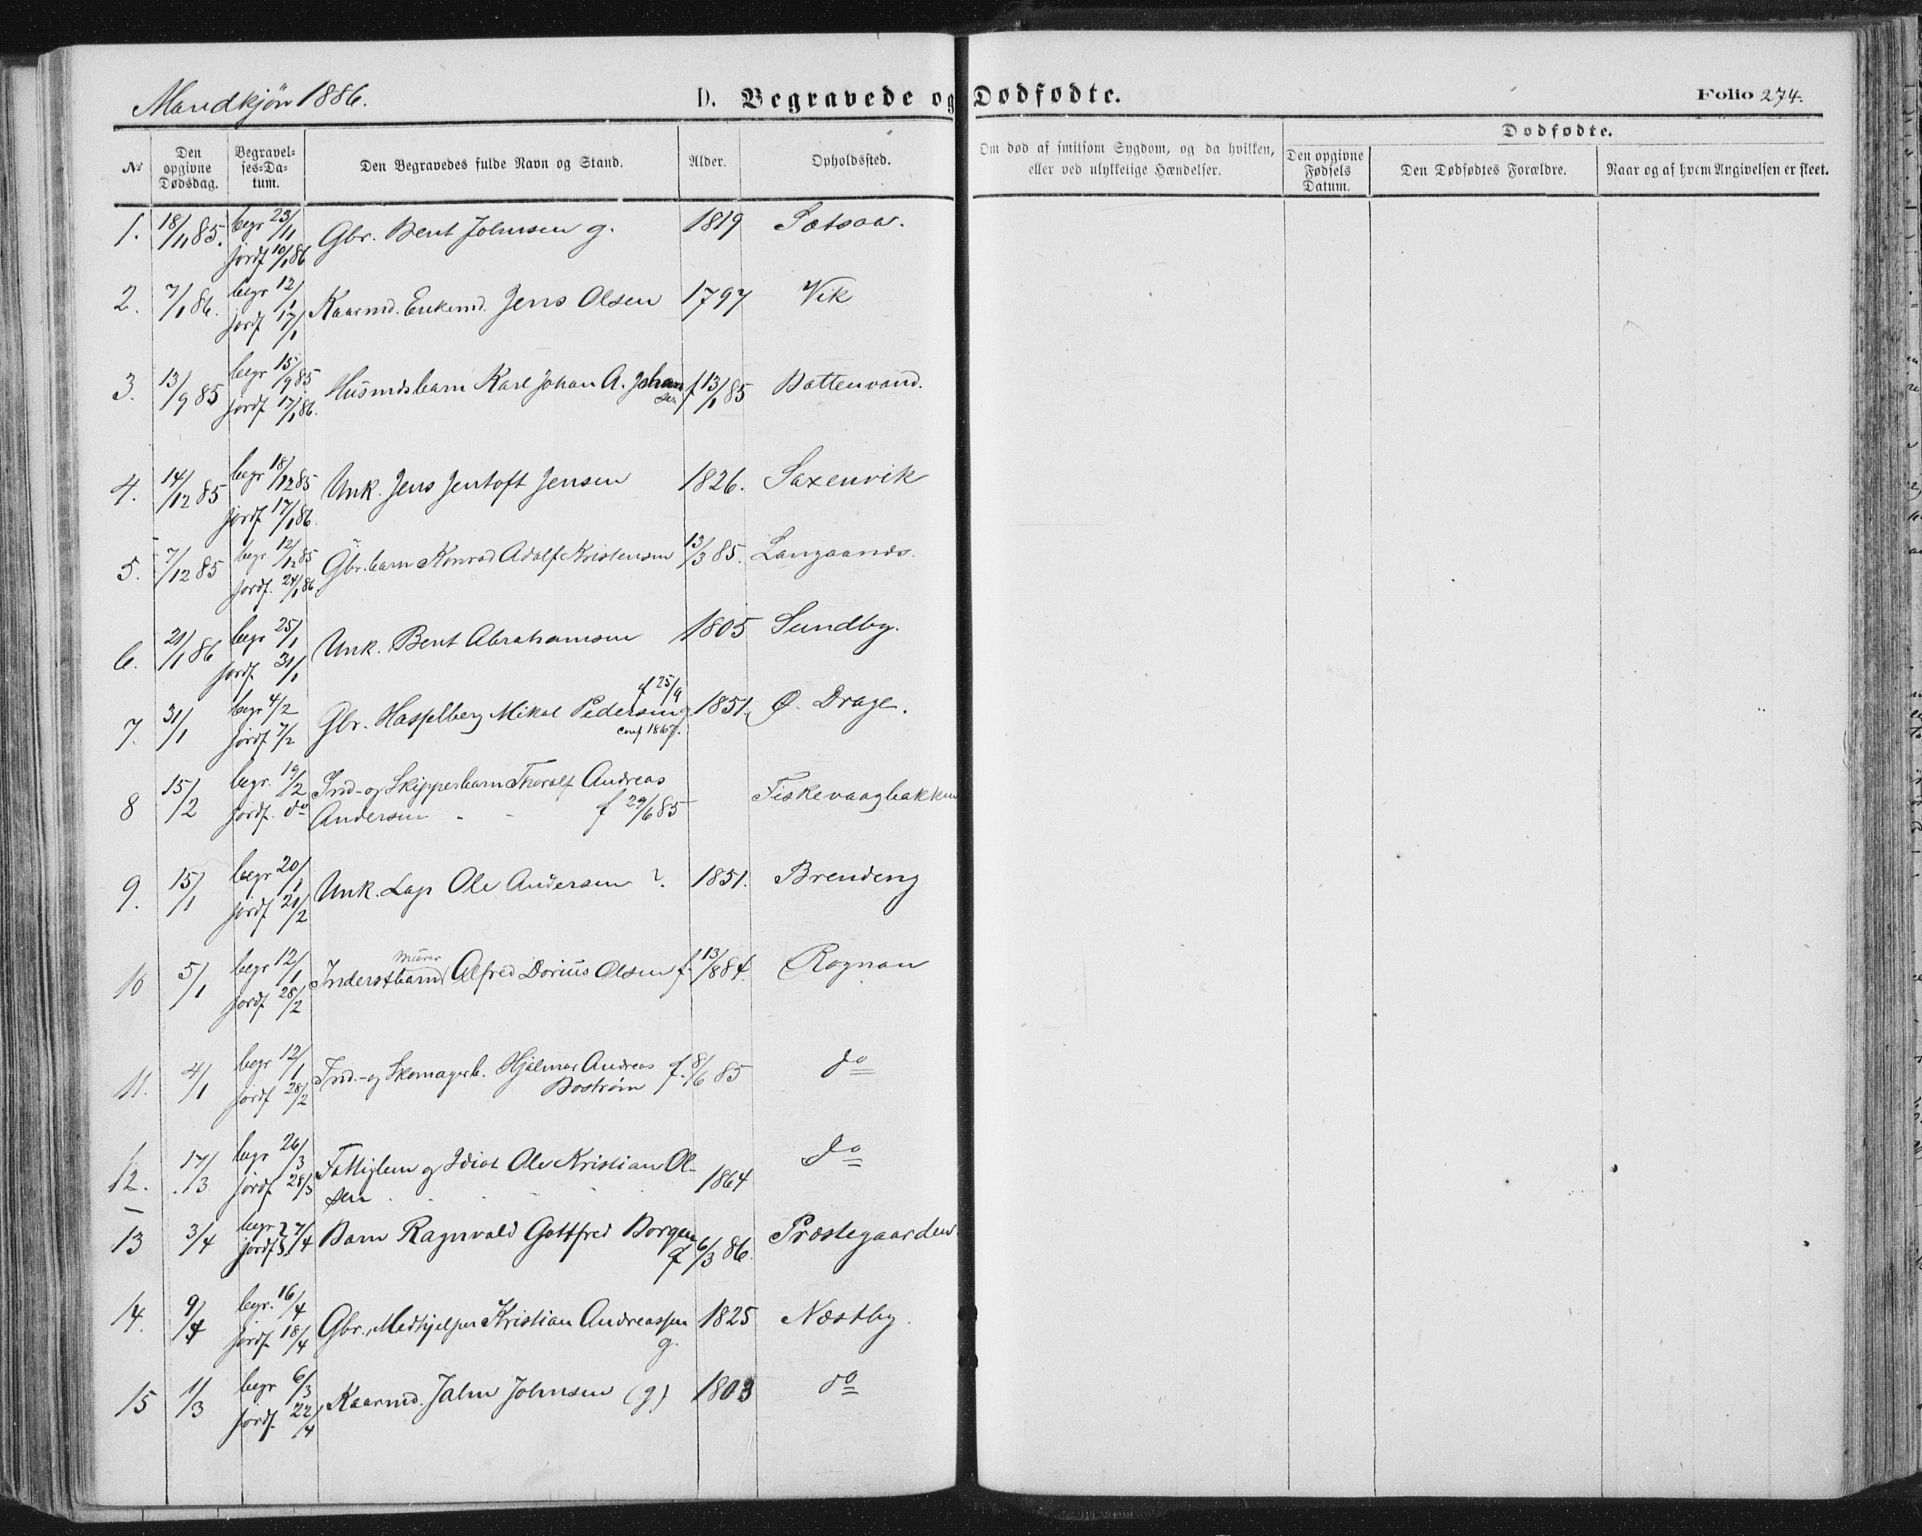 Mandkjön 1886.
D. Begravede og Dødfødte.
Folio 274.
№
Den opgivne Dødsdag.
Begravelses-Datum.
Den Begravedes fulde Navn og Stand.
Alder.
Opholdssted.
Om død af smitsom Sygdom, og da hvilken, eller ved ulykkelige Hændelser.
Dødfødte.
Den opgivne Fødsels Datum.
Den Dødfødtes Forældre.
Naar og af hvem Angivelsen er skeet.
1. 18/11 85. begr 23/11 Gbr. Bent Johnsen g. 1819 Sætsaa.
jordf 10/1 86
2. 7/1 86. begr 12/1 Kaarmd. Enkemd. Jens Olsen 1797 Vik
jordf 17/1
3. 13/9 85 begr 15/9 85 Husmdsbarn Karl Johan A. Johansen f 13/1 85 Bottenvand.
jordf 17/1 86.
4. 14/12 85 begr 18/12 85 Unk. Jens Jentoft Jensen 1826. Saxenvik
jordf 17/1 86.
5. 7/12 85 begr 12/12 85 Gbr. barn Konrad Adolf Kristensen 13/3 85. Langaands.
jordf. 24/1 86
6. 21/1 86 begr 25/1 Unk. Bent Abrahamsen 1805 Sundby.
jordf. 31/1
f 25/9
7. 31/1 begr 4/2 Gbr. Hasselberg Mikal Pedersen g 1851. Ø. Drage.
jordf 7/2 conf 1867.
8 15/2 begr. 19/2 Ind- og Skipperbarn Thoralf Andreas Fiskevaagbakken
jordf. do Andersen f 29/6 85
9. 15/1 begr 20/1 Unk. Lap Ole Andersen ?. 1851. Brendeng
jordf 21/2
Murer
10 5/1 begr 12/1 Inderstbarn Alfred Dorius Olsen f. 13/8 84. Rognan
jordf. 28/2
11. 4/1 begr 12/1 Ind.- og Skomagerb. Hjalmar Andreas f. 8/6 85 do
jordf 28/2 Boström
12. 17/3 begr 26/3 Fattiglem og Idiot Ole Kristian Ol- 1864 do
jordf 28/3 sen
13 3/4 begr jordf 7/4 Barn Ragnvald Gottfred Borgen Præstegaarden
f 6/3 86.
14. 9/4 begr. 16/4 Gbr. Medhjelper Kristian Andreassen 1825 Næstby.
jordf 18/4 g.
15 1/3 begr 6/3 Kaarmd. John Johnsen (g) 1803 do
jordf. 22/4